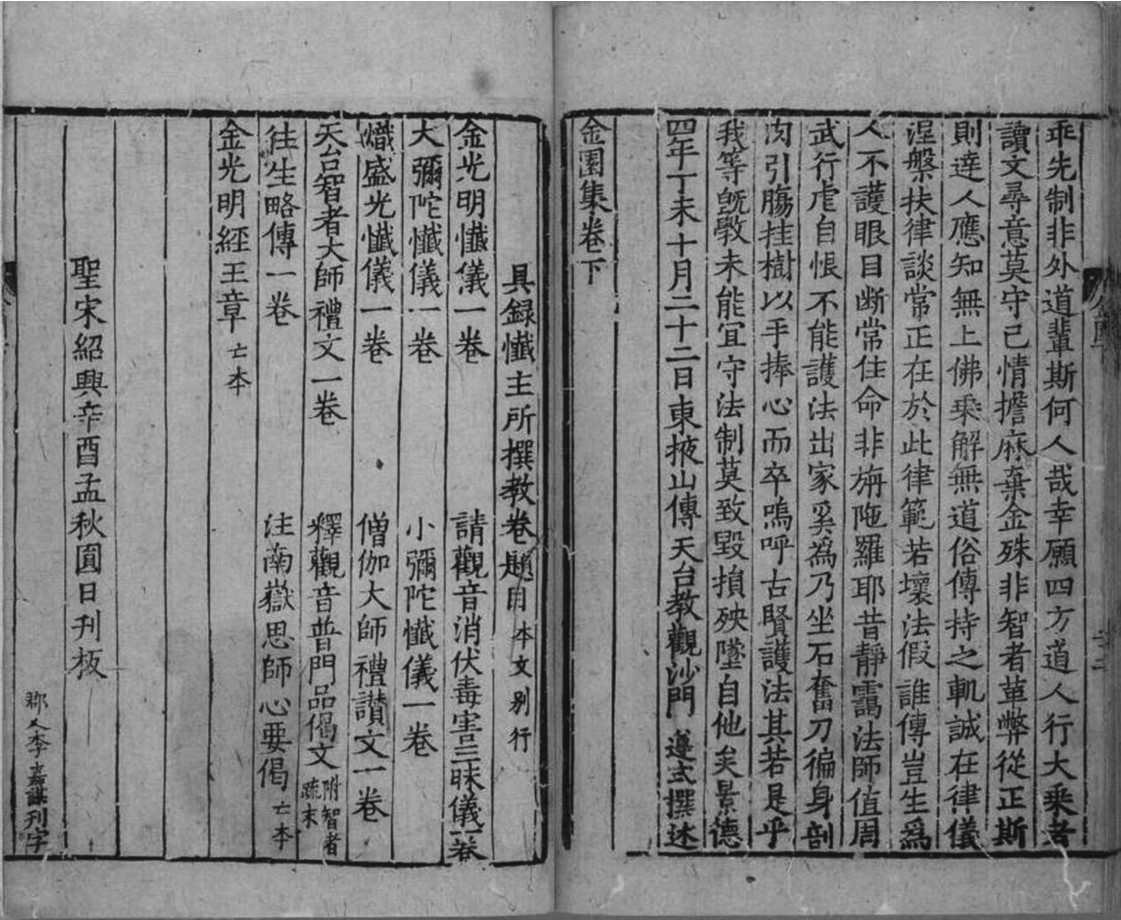 乖先制非外道輩斯何人哉幸願四方道人行大乘者
讀文尋意莫守己情擔麻棄金殊非智者革弊從正斯
則達人應知無上佛乘解無道俗傳持之軌誠在律儀
涅槃扶律談常正在於此律範若壞法假誰傳豈生為
人不護眼目断常住命非旃陁羅耶昔靜靄法師值周
武行虐自恨不能護法出家奚為乃坐石奮刀徧身剖
肉引腸挂樹以手捧心而卒嗚呼古賢護法其若是乎
我等既斅未能宜守法制莫致毀損殃墜自他矣景德
四年丁未十月二十二日東掖山傳天台教觀沙門 遵式撰述
金園集卷下
具録懺主所撰教卷題目 本文别行
金光明懺儀一卷 請觀音消伏毒害三昧儀一卷
大彌陀懺儀一卷 小彌陀懺儀一卷
熾盛光懺儀一卷 僧伽大師禮讚文一卷
天台智者大師禮文一卷 釋觀音普門品偈文 附智者疏末
往生略傳一卷 注南嶽思師心要偈 亡本
金光明經王章 亡本
聖宋紹興辛酉孟秋圓日刊板
鄞人李 謀刊字